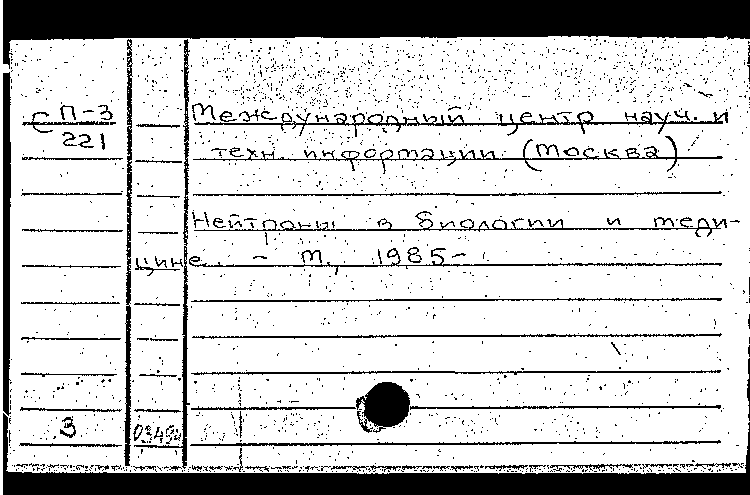 С П-3
221
Международный центр науч. и
техн. информации (Москва)
Нейтроны в биологии и меди-
цине. - М., 1985-
3